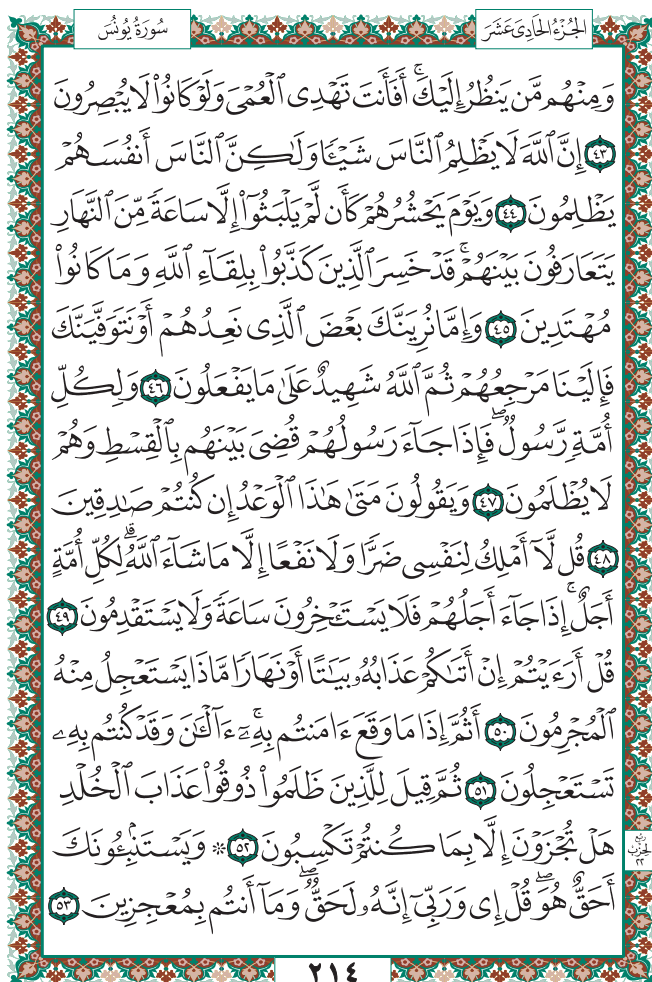 الجُزْءُ الحَادِى عَشَرَ
سُورَةُ يُونُسَ
وَمِنْهُم مَّن يَنظُرُ إِلَيْكَۚ أَفَأَنتَ تَهْدِى ٱلْعُمْىَ وَلَوْ كَانُوا۟ لَا يُبْصِرُونَ
٤٣ إِنَّ ٱللَّهَ لَا يَظْلِمُ ٱلنَّاسَ شَيْـًٔا وَلَٰكِنَّ ٱلنَّاسَ أَنفُسَهُمْ
يَظْلِمُونَ ٤٤ وَيَوْمَ يَحْشُرُهُمْ كَأَن لَّمْ يَلْبَثُوٓا۟ إِلَّا سَاعَةً مِّنَ ٱلنَّهَارِ
يَتَعَارَفُونَ بَيْنَهُمْۚ قَدْ خَسِرَ ٱلَّذِينَ كَذَّبُوا۟ بِلِقَآءِ ٱللَّهِ وَمَا كَانُوا۟
مُهْتَدِينَ ٤٥ وَإِمَّا نُرِيَنَّكَ بَعْضَ ٱلَّذِى نَعِدُهُمْ أَوْ نَتَوَفَّيَنَّكَ
فَإِلَيْنَا مَرْجِعُهُمْ ثُمَّ ٱللَّهُ شَهِيدٌ عَلَىٰ مَا يَفْعَلُونَ ٤٦ وَلِكُلِّ
أُمَّةٍ رَّسُولٌۖ فَإِذَا جَآءَ رَسُولُهُمْ قُضِىَ بَيْنَهُم بِٱلْقِسْطِ وَهُمْ
لَا يُظْلَمُونَ ٤٧ وَيَقُولُونَ مَتَىٰ هَٰذَا ٱلْوَعْدُ إِن كُنتُمْ صَٰدِقِينَ
٤٨ قُل لَّآ أَمْلِكُ لِنَفْسِى ضَرًّا وَلَا نَفْعًا إِلَّا مَا شَآءَ ٱللَّهُۗ لِكُلِّ أُمَّةٍ
أَجَلٌۚ إِذَا جَآءَ أَجَلُهُمْ فَلَا يَسْتَـْٔخِرُونَ سَاعَةً وَلَا يَسْتَقْدِمُونَ ٤٩
قُلْ أَرَءَيْتُمْ إِنْ أَتَىٰكُمْ عَذَابُهُۥ بَيَٰتًا أَوْ نَهَارًا مَّاذَا يَسْتَعْجِلُ مِنْهُ
ٱلْمُجْرِمُونَ ٥٠ أَثُمَّ إِذَا مَا وَقَعَ ءَامَنتُم بِهِۦٓۚ ءَآلْـَٰٔنَ وَقَدْ كُنتُم بِهِۦ
تَسْتَعْجِلُونَ ٥١ ثُمَّ قِيلَ لِلَّذِينَ ظَلَمُوا۟ ذُوقُوا۟ عَذَابَ ٱلْخُلْدِ
هَلْ تُجْزَوْنَ إِلَّا بِمَا كُنتُمْ تَكْسِبُونَ ٥٢ ۞ وَيَسْتَنۢبِـُٔونَكَ
أَحَقٌّ هُوَۖ قُلْ إِى وَرَبِّىٓ إِنَّهُۥ لَحَقٌّۖ وَمَآ أَنتُم بِمُعْجِزِينَ ٥٣
ربع
الحزب
٢٢
٢١٤